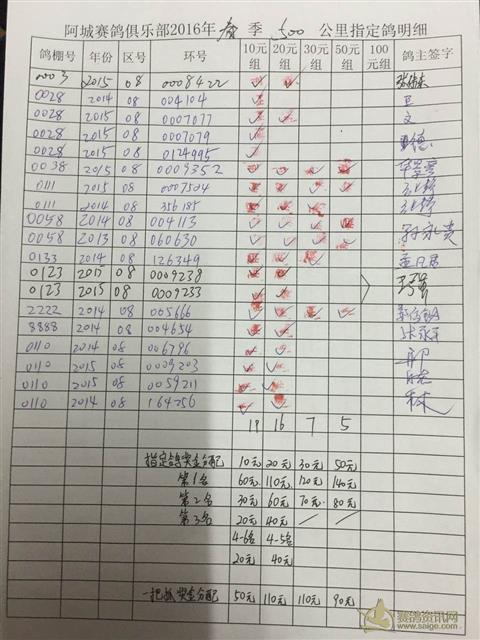 阿城赛鸽俱乐部2016年春季 500 公里指定鸽明细
鸽棚号 年份 区号 环号 10元组 20元组 30元组 50元组 100元组 鸽主签字
0003 2015 08 0008422 ✓ ✓
0028 2014 08 004104 ✓
0028 2015 08 0007077 ✓ ✓ 文
0028 2015 08 0007079 ✓
0028 2015 08 0124995 ✓
0038 2015 08 0009352 ✓ ✓ ✓ ✓
0111 2015 08 0007504 ✓ ✓ ✓ ✓
0111 2014 08 356185 ✓ ✓ ✓
0058 2014 08 004113 ✓ ✓ ✓ ✓
0058 2013 08 060630 ✓ ✓ ✓ ✓
0133 2014 08 126349 ✓ ✓ ✓
0123 2015 08 0009238 ✓ ✓
0123 2015 08 0009233 ✓ ✓
2222 2014 08 005666 ✓ ✓ ✓ ✓
8888 2014 08 004654 ✓ ✓
0110 2014 08 006796 ✓ ✓
0110 2015 08 0009203 ✓ ✓
0110 2015 08 0059211 ✓ ✓
0110 2014 08 164256 ✓ ✓
16 7 5
指定鸽奖金分配 10元 20元 30元 50元
第1名 60元 110元 120元 140元
第2名 30元 60元 70元 80元
第3名 20元 40元 / /
4-6名 4-5名
20元 40元
一把抓奖金分配 50元 110元 110元 90元
赛鸽资讯网
www.saige.com